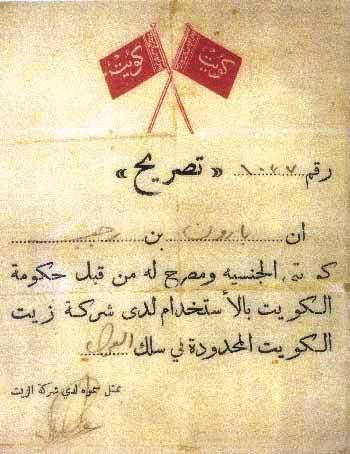 كويت كويت
رقم ١٠٣٧ «تصريح»
ان بن
كويتي الجنسيه ومصرح له من قبل حكومة
الكويت بالأستخدام لدى شركة زيت
الكويت المحدودة في سلك العمال
ممثل سموه لدي شركة الزيت